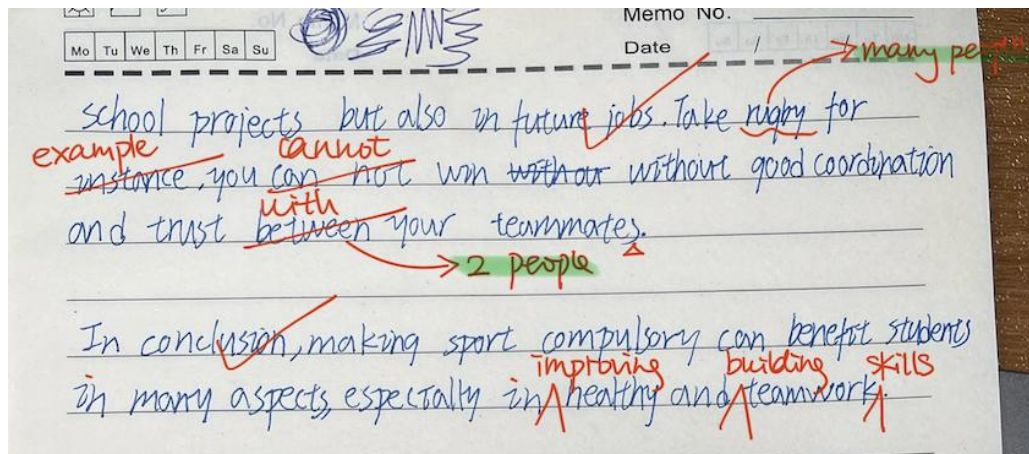 Memo No.
Mo Tu We Th Fr Sa Su
Date / /
many
school projects but also in future jobs. Take rugby for
example cannot
instance, you can not win without without good coordination
with
and trust between your teammates.
2 people
In conclusion, making sport compulsory can benefit students
improving building skills
in many aspects, especially in healthy and teamwork.